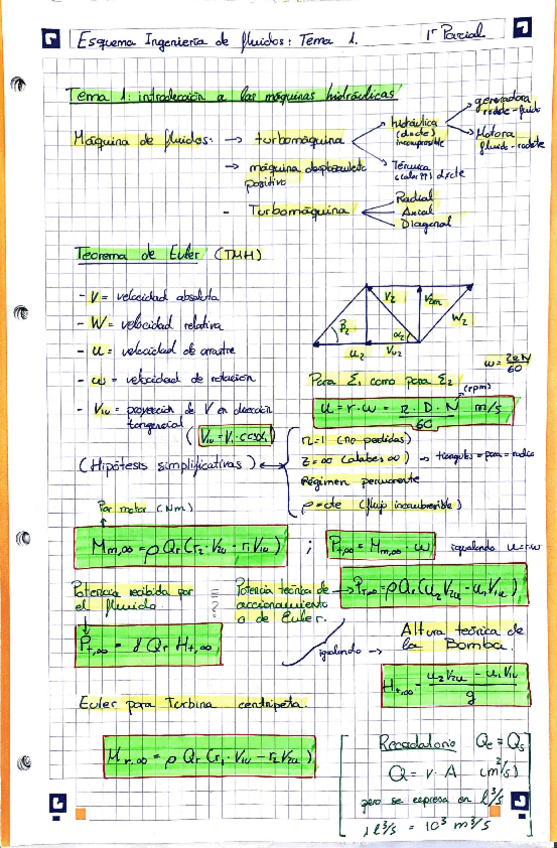 Esquema Ingeniería de fluidos: Tema 1. 1er Parcial
Tema 1: introducción a las máquinas hidráulicas
Máquina de fluidos: → turbomáquina
hidráulica
(d=cte)
incompresible
generadora
rodete-fluido
Motora
fluido-rodete
Térmica
→ máquina desplazamiento
positivo
- Turbomáquina
Radial
Axial
Diagonal
Teorema de Euler (TMH)
- V = velocidad absoluta
- W = velocidad relativa
- u = velocidad de arrastre
- ω = velocidad de rotación
- V1u = proyección de V en dirección
tangencial
(V1u = V1·cosα1)
β2 V2 α2 V2m W2
u2 V2u
ω = 2πN/60
Para Σ1 como para Σ2
(rpm)
u = r·ω = π·D·N/60 m/s
(Hipótesis simplificativas) ↔
η=1 (no perdidas)
Z=∞ (alabes ∞) →
Régimen permanente
ρ=cte (flujo incompresible)
Par motor (Nm)
Mm,∞ = ρ Qr (r2·V2u - r1 V1u) ; Pt,∞ = Mm,∞·ω igualando u=r·ω
Potencia recibida por
el fluido.
= ?
Potencia teórica de
accionamiento
o de Euler.
→ Pt,∞ = ρ Qr (u2 V2u - u1 V1u)
Pt,∞ = γ Qr Ht,∞
igualando →
Altura teórica de
la Bomba.
Ht,∞ = u2 V2u - u1 V1u / g
Euler para Turbina centrípeta.
Mr,∞ = ρ Qr (r1·V1u - r2 V2u)
Recordatorio Qe = Qs
Q = v·A (m³/s)
pero se expresa en l³/s
1 l³/s = 10³ m³/s